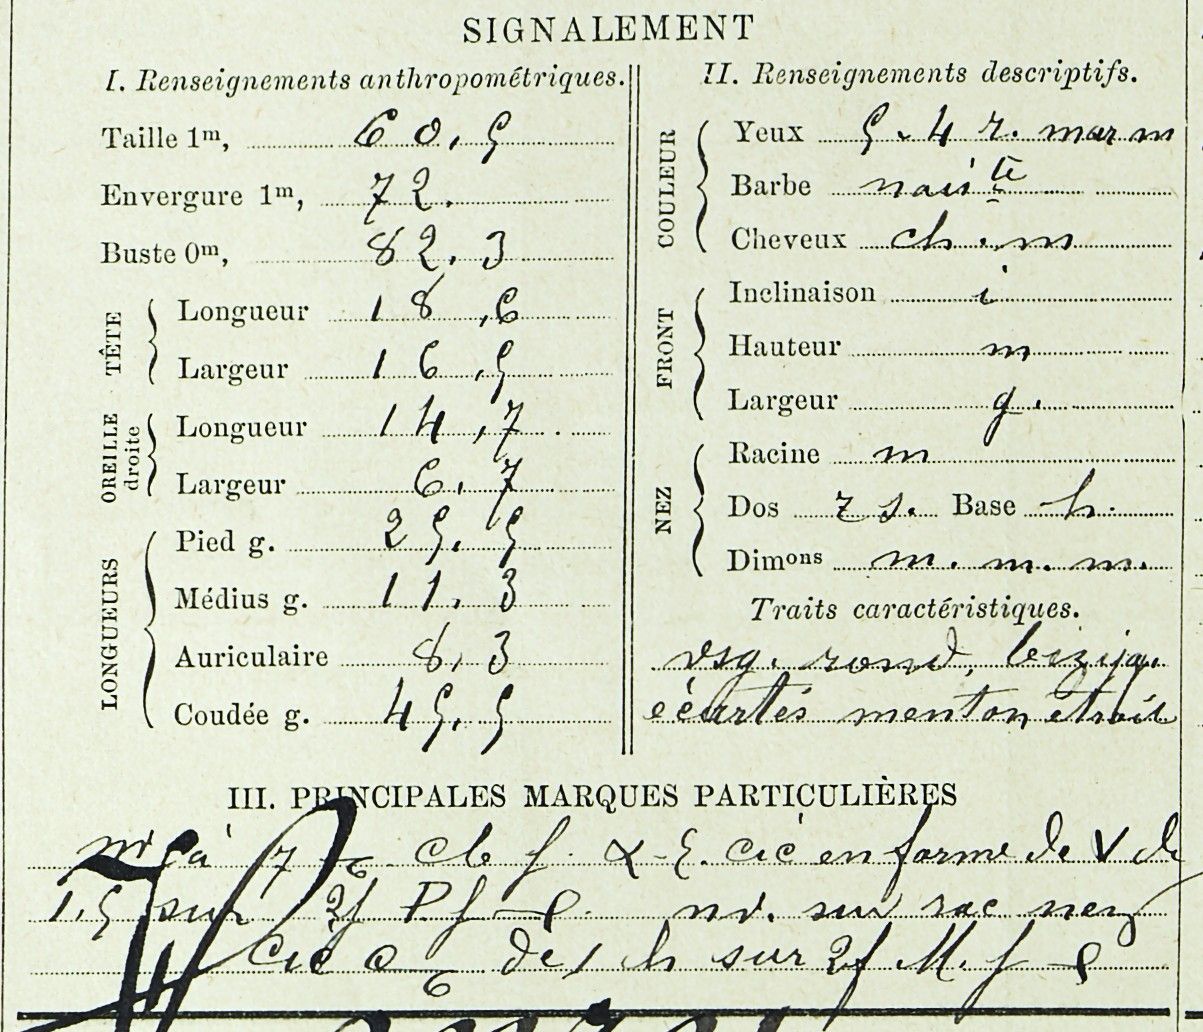 SIGNALEMENT
I. Renseignements anthropométriques.
Taille 1m, 60,5
Envergure 1m, 72.
Buste 0m, 82,3
TÊTE
Longueur 18,6
Largeur 16,5
OREILLE droite
Longueur 14,7
Largeur 6,7
LONGUEURS
Pied g. 25,5
Médius g. 11,3
Auriculaire 8,3
Coudée g. 45,5
II. Renseignements descriptifs.
COULEUR
Yeux 5-4 r. mar m
Barbe naisте
Cheveux ch. m
FRONT
Inclinaison i
Hauteur m
Largeur g.
NEZ
Racine m
Dos r s. Base h.
Dimons m. m. m.
Traits caractéristiques.
vsg. rond, bizyg.
écartés menton étroit
III. PRINCIPALES MARQUES PARTICULIÈRES
nv à 7 cb f. cic en forme de V de
1.5 sur 2f P. f nv. sur rac nez
cic de 1 h sur 2f M. f